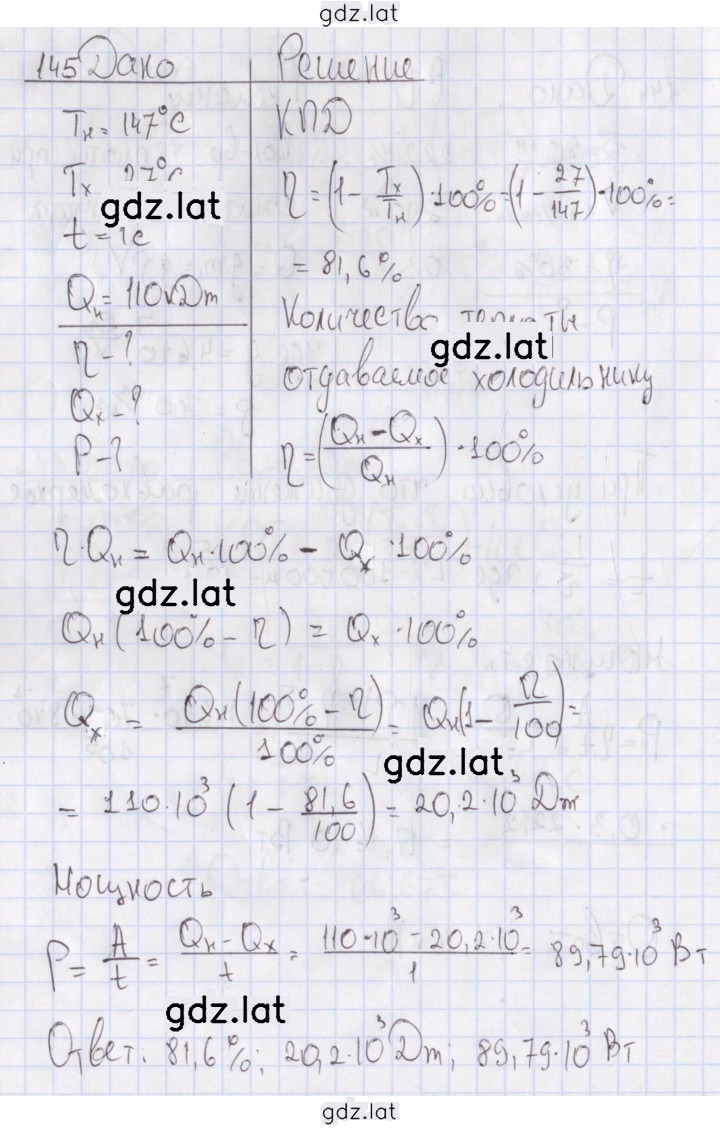 gdz.lat
145 Дано
Tн = 147°C
Tх
gdz.lat
t = 1c
Qн = 110кДж
η - ?
Qх - ?
P - ?
Решение
КПД
η = (1 - Tх/Tн) · 100% = (1 - 27/147) · 100% =
= 81,6%
Количество
gdz.lat
отдаваемое холодильнику
η = ((Qн - Qх)/Qн) · 100%
η · Qн = Qн · 100% - Qх · 100%
gdz.lat
Qн (100% - η) = Qх · 100%
Qх = Qн(100% - η)/100% = Qн(1 - η/100) =
gdz.lat
= 110 · 10³ (1 - 81,6/100) = 20,2 · 10³ Дж
Мощность
P = A/t = (Qн - Qх)/t = (110·10³ - 20,2·10³)/1 = 89,79·10³ Вт
gdz.lat
Ответ: 81,6%; 20,2·10³ Дж; 89,79·10³ Вт
gdz.lat